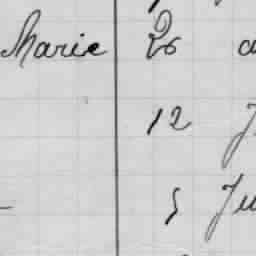 Marie 26 a
12 J
5 Ju